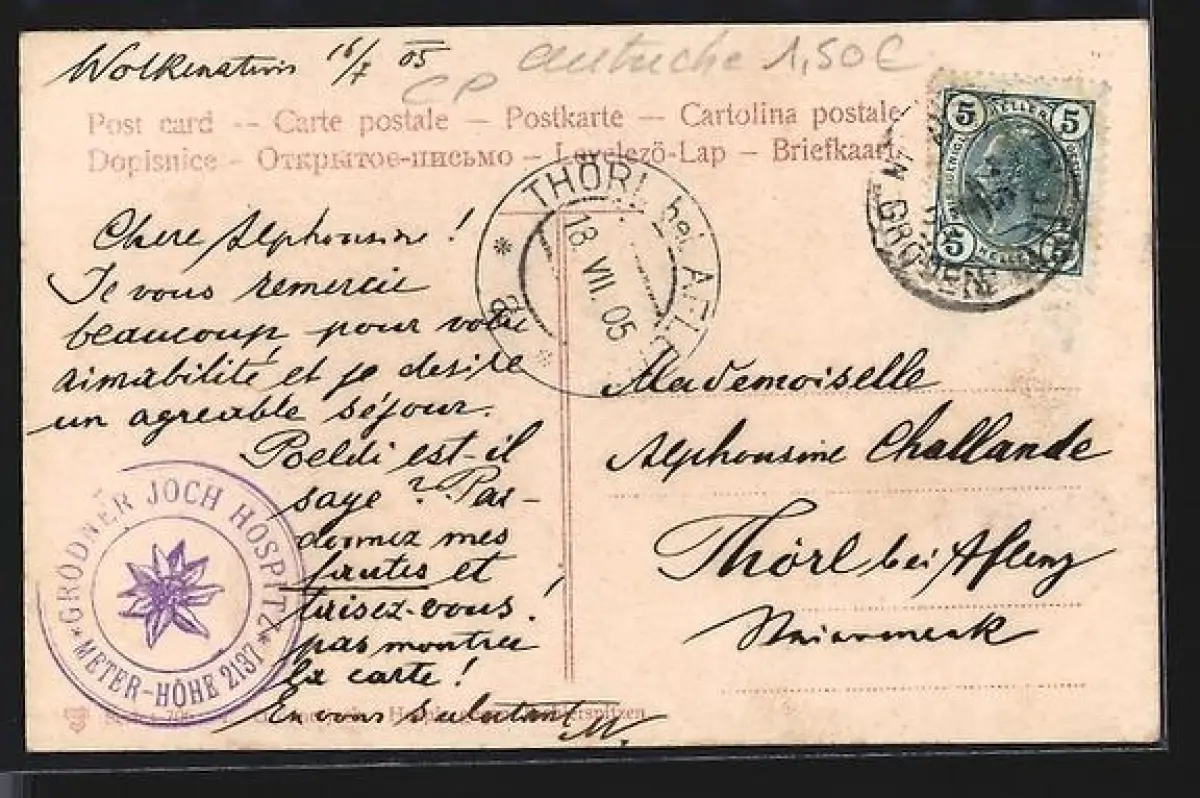 Wolkenstein 16/7 05
autriche 1,50€
CP
Post card -- Carte postale – Postkarte – Cartolina postale
Dopisnice – Открытое-письмо – Levelezö-Lap – Briefkaart
5 HELLER 5
5 HELLER 5
GRÖDEN
THÖRL bei AFL
18. VII. 05
a
Chere Alphonsine!
Je vous remercie
beaucoup pour votre
aimabilité et je desire
un agreable séjour.
Poeldi est-il
sage? Par-
donnez mes
fautes et
taisez-vous!
pas montrer
la carte!
En vous salutant
M.
Mademoiselle
Alphonsine Challande
Thörl bei Aflenz
Steiermark
*GRÖDNER JOCH HOSPITZ*
METER-HÖHE 2137
spitzen